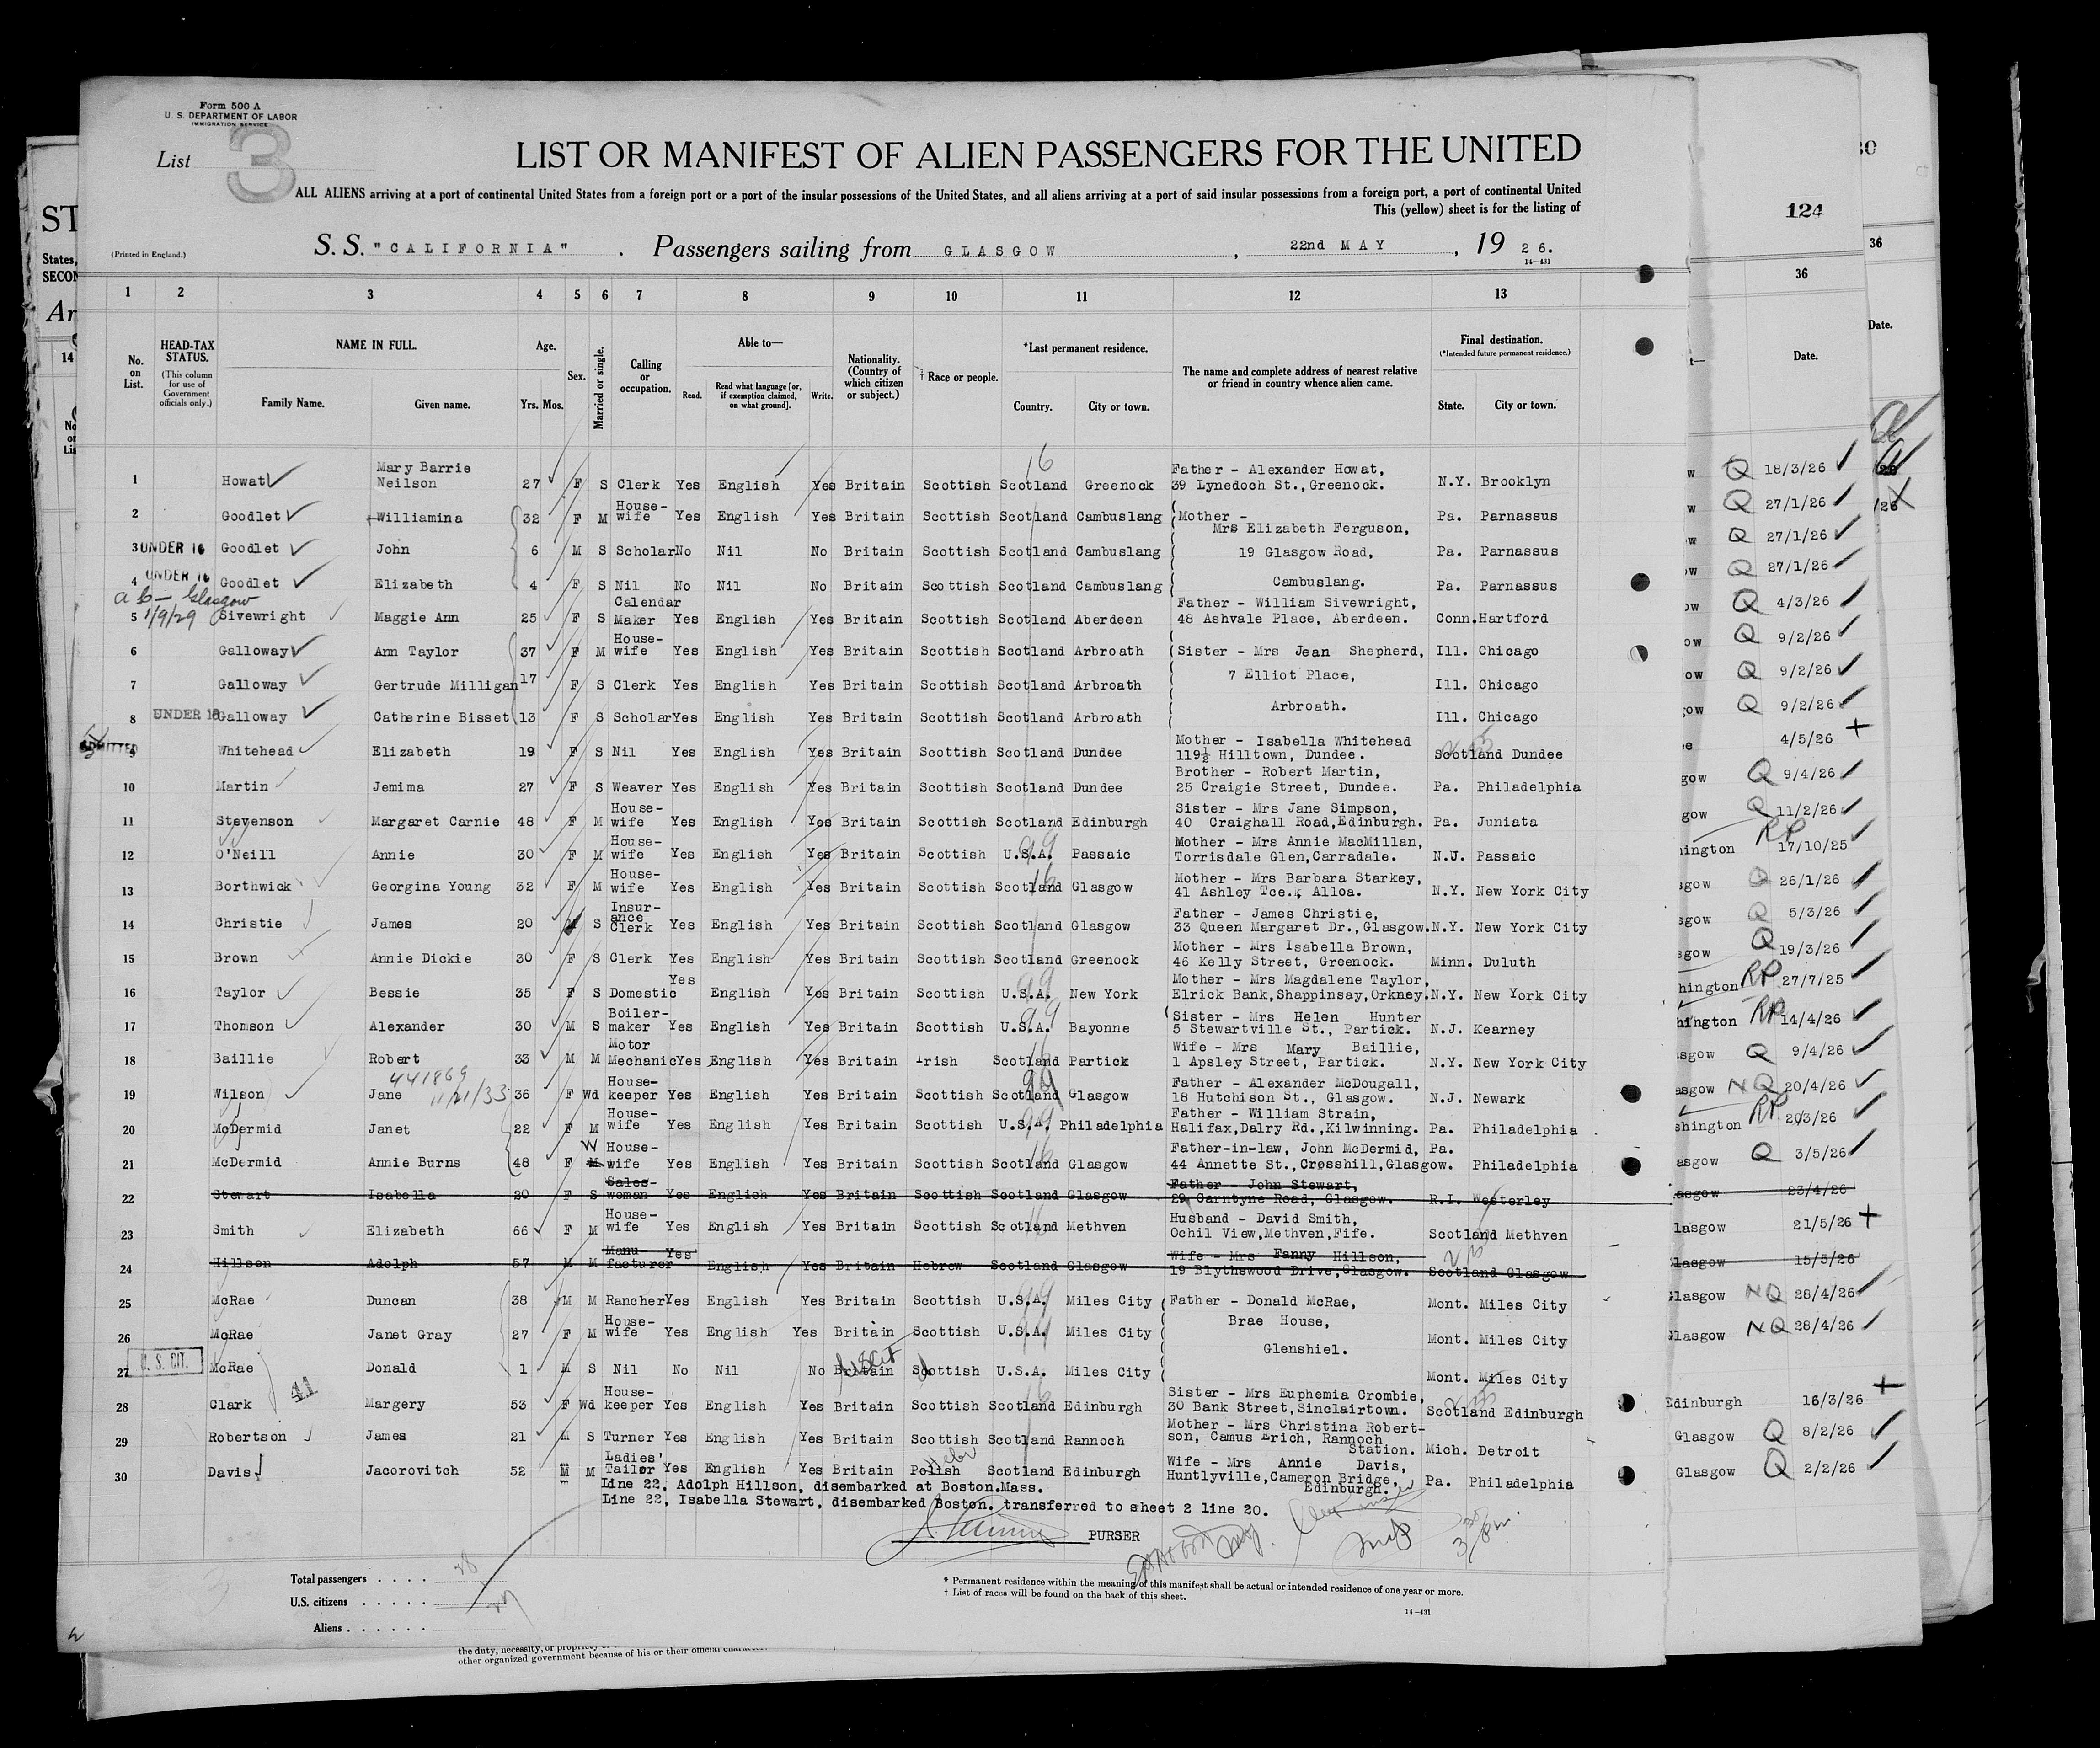 Form 500 A
U. S. DEPARTMENT OF LABOR
IMMIGRATION SERVICE
List 3
LIST OR MANIFEST OF ALIEN PASSENGERS FOR THE UNITED
ALL ALIENS arriving at a port of continental United States from a foreign port or a port of the insular possessions of the United States, and all aliens arriving at a port of said insular possessions from a foreign port, a port of continental United
This (yellow) sheet is for the listing of
(Printed in England.)
S. S. "CALIFORNIA" . Passengers sailing from GLASGOW , 22nd MAY , 19 26.
14-431
1 2 3 4 5 6 7 8 9 10 11 12 13
No. on List.
HEAD-TAX STATUS.
(This column for use of Government officials only.)
NAME IN FULL.
Family Name. Given name.
Age.
Yrs. Mos.
Sex.
Married or single.
Calling or occupation.
Able to—
Read. Read what language [or, if exemption claimed, on what ground]. Write.
Nationality. (Country of which citizen or subject.)
† Race or people.
*Last permanent residence.
Country. City or town.
The name and complete address of nearest relative or friend in country whence alien came.
Final destination.
(*Intended future permanent residence.)
State. City or town.
1 Howat Mary Barrie Neilson 27 F S Clerk Yes English Yes Britain Scottish Scotland Greenock Father - Alexander Howat, 39 Lynedoch St., Greenock. N.Y. Brooklyn
2 Goodlet Williamina 32 F M House-wife Yes English Yes Britain Scottish Scotland Cambuslang Mother - Mrs Elizabeth Ferguson, Pa. Parnassus
3 UNDER 16 Goodlet John 6 M S Scholar No Nil No Britain Scottish Scotland Cambuslang 19 Glasgow Road, Pa. Parnassus
4 UNDER 16 Goodlet Elizabeth 4 F S Nil No Nil No Britain Scottish Scotland Cambuslang Cambuslang. Pa. Parnassus
Glasgow
5 1/9/29 Sivewright Maggie Ann 25 F S Calendar Maker Yes English Yes Britain Scottish Scotland Aberdeen Father - William Sivewright, 48 Ashvale Place, Aberdeen. Conn. Hartford
6 Galloway Ann Taylor 37 F M House-wife Yes English Yes Britain Scottish Scotland Arbroath Sister - Mrs Jean Shepherd, Ill. Chicago
7 Galloway Gertrude Milligan 17 F S Clerk Yes English Yes Britain Scottish Scotland Arbroath 7 Elliot Place, Ill. Chicago
8 UNDER 16 Galloway Catherine Bisset 13 F S Scholar Yes English Yes Britain Scottish Scotland Arbroath Arbroath. Ill. Chicago
ADMITTED 9 Whitehead Elizabeth 19 F S Nil Yes English Yes Britain Scottish Scotland Dundee Mother - Isabella Whitehead 119½ Hilltown, Dundee. Scotland Dundee
10 Martin Jemima 27 F S Weaver Yes English Yes Britain Scottish Scotland Dundee Brother - Robert Martin, 25 Craigie Street, Dundee. Pa. Philadelphia
11 Stevenson Margaret Carnie 48 F M House-wife Yes English Yes Britain Scottish Scotland Edinburgh Sister - Mrs Jane Simpson, 40 Craighall Road, Edinburgh. Pa. Juniata
12 O'Neill Annie 30 F M House-wife Yes English Yes Britain Scottish U.S.A. Passaic Mother - Mrs Annie MacMillan, Torrisdale Glen, Carradale. N.J. Passaic
13 Borthwick Georgina Young 32 F M House-wife Yes English Yes Britain Scottish Scotland Glasgow Mother - Mrs Barbara Starkey, 41 Ashley Tce., Alloa. N.Y. New York City
14 Christie James 20 M S Insur-ance Clerk Yes English Yes Britain Scottish Scotland Glasgow Father - James Christie, 33 Queen Margaret Dr., Glasgow. N.Y. New York City
15 Brown Annie Dickie 30 F S Clerk Yes English Yes Britain Scottish Scotland Greenock Mother - Mrs Isabella Brown, 46 Kelly Street, Greenock. Minn. Duluth
16 Taylor Bessie 35 F S Domestic Yes English Yes Britain Scottish U.S.A. New York Mother - Mrs Magdalene Taylor, Elrick Bank, Shappinsay, Orkney. N.Y. New York City
17 Thomson Alexander 30 M S Boiler-maker Yes English Yes Britain Scottish U.S.A. Bayonne Sister - Mrs Helen Hunter 5 Stewartville St., Partick. N.J. Kearney
18 Baillie Robert 33 M M Motor Mechanic Yes English Yes Britain Irish Scotland Partick Wife - Mrs Mary Baillie, 1 Apsley Street, Partick. N.Y. New York City
441869 11/21/33
19 Wilson Jane 36 F Wd House-keeper Yes English Yes Britain Scottish Scotland Glasgow Father - Alexander McDougall, 18 Hutchison St., Glasgow. N.J. Newark
20 McDermid Janet 22 F M House-wife Yes English Yes Britain Scottish U.S.A. Philadelphia Father - William Strain, Halifax, Dalry Rd., Kilwinning. Pa. Philadelphia
21 McDermid Annie Burns 48 F W M House-wife Yes English Yes Britain Scottish Scotland Glasgow Father-in-law, John McDermid, 44 Annette St., Crosshill, Glasgow. Pa. Philadelphia
22 Stewart Isabella 20 F S Sales-woman Yes English Yes Britain Scottish Scotland Glasgow Father - John Stewart, 29 Carntyne Road, Glasgow. R.I. Westerley
23 Smith Elizabeth 66 F M House-wife Yes English Yes Britain Scottish Scotland Methven Husband - David Smith, Ochil View, Methven, Fife. Scotland Methven
24 Hillson Adolph 57 M M Manu-facturer Yes English Yes Britain Hebrew Scotland Glasgow Wife - Mrs Fanny Hillson, 19 Blythswood Drive, Glasgow. Scotland Glasgow
25 McRae Duncan 38 M M Rancher Yes English Yes Britain Scottish U.S.A. Miles City Father - Donald McRae, Mont. Miles City
26 McRae Janet Gray 27 F M House-wife Yes English Yes Britain Scottish U.S.A. Miles City Brae House, Glenshiel. Mont. Miles City
27 U. S. CIT. McRae Donald 1 M S Nil No Nil No Britain Scottish U.S.A. Miles City Mont. Miles City
41
28 Clark Margery 53 F Wd House-keeper Yes English Yes Britain Scottish Scotland Edinburgh Sister - Mrs Euphemia Crombie, 30 Bank Street, Sinclairtown. Scotland Edinburgh
29 Robertson James 21 M S Turner Yes English Yes Britain Scottish Scotland Rannoch Mother - Mrs Christina Robert-son, Camus Erich, Rannoch Station. Mich. Detroit
30 Davis Jacorovitch 52 M M Ladies' Tailor Yes English Yes Britain Polish Hebr Scotland Edinburgh Wife - Mrs Annie Davis, Huntlyville, Cameron Bridge, Edinburgh. Pa. Philadelphia
Line 22, Adolph Hillson, disembarked at Boston.Mass.
Line 22, Isabella Stewart, disembarked Boston. transferred to sheet 2 line 20.
PURSER
Total passengers . . . .
U.S. citizens . . . . .
Aliens . . . . . .
* Permanent residence within the meaning of this manifest shall be actual or intended residence of one year or more.
† List of races will be found on the back of this sheet.
14-431
other organized government because of his or their official
ST
States,
SECON
Ar
14
124
36
36
Date.
Date.
Q 18/3/26
Q 27/1/26
Q 27/1/26
Q 27/1/26
Q 4/3/26
Q 9/2/26
Q 9/2/26
Q 9/2/26
4/5/26
gow Q 9/4/26
gow Q 11/2/26
hington RP 17/10/25
sgow Q 26/1/26
sgow Q 5/3/26
sgow Q 19/3/26
hington RP 27/7/25
hington RP 14/4/26
sgow Q 9/4/26
asgow NQ 20/4/26
shington RP 20/3/26
asgow Q 3/5/26
asgow 23/4/26
lasgow 21/5/26
lasgow 15/5/26
lasgow NQ 28/4/26
lasgow NQ 28/4/26
Edinburgh 16/3/26
Glasgow Q 8/2/26
Glasgow Q 2/2/26